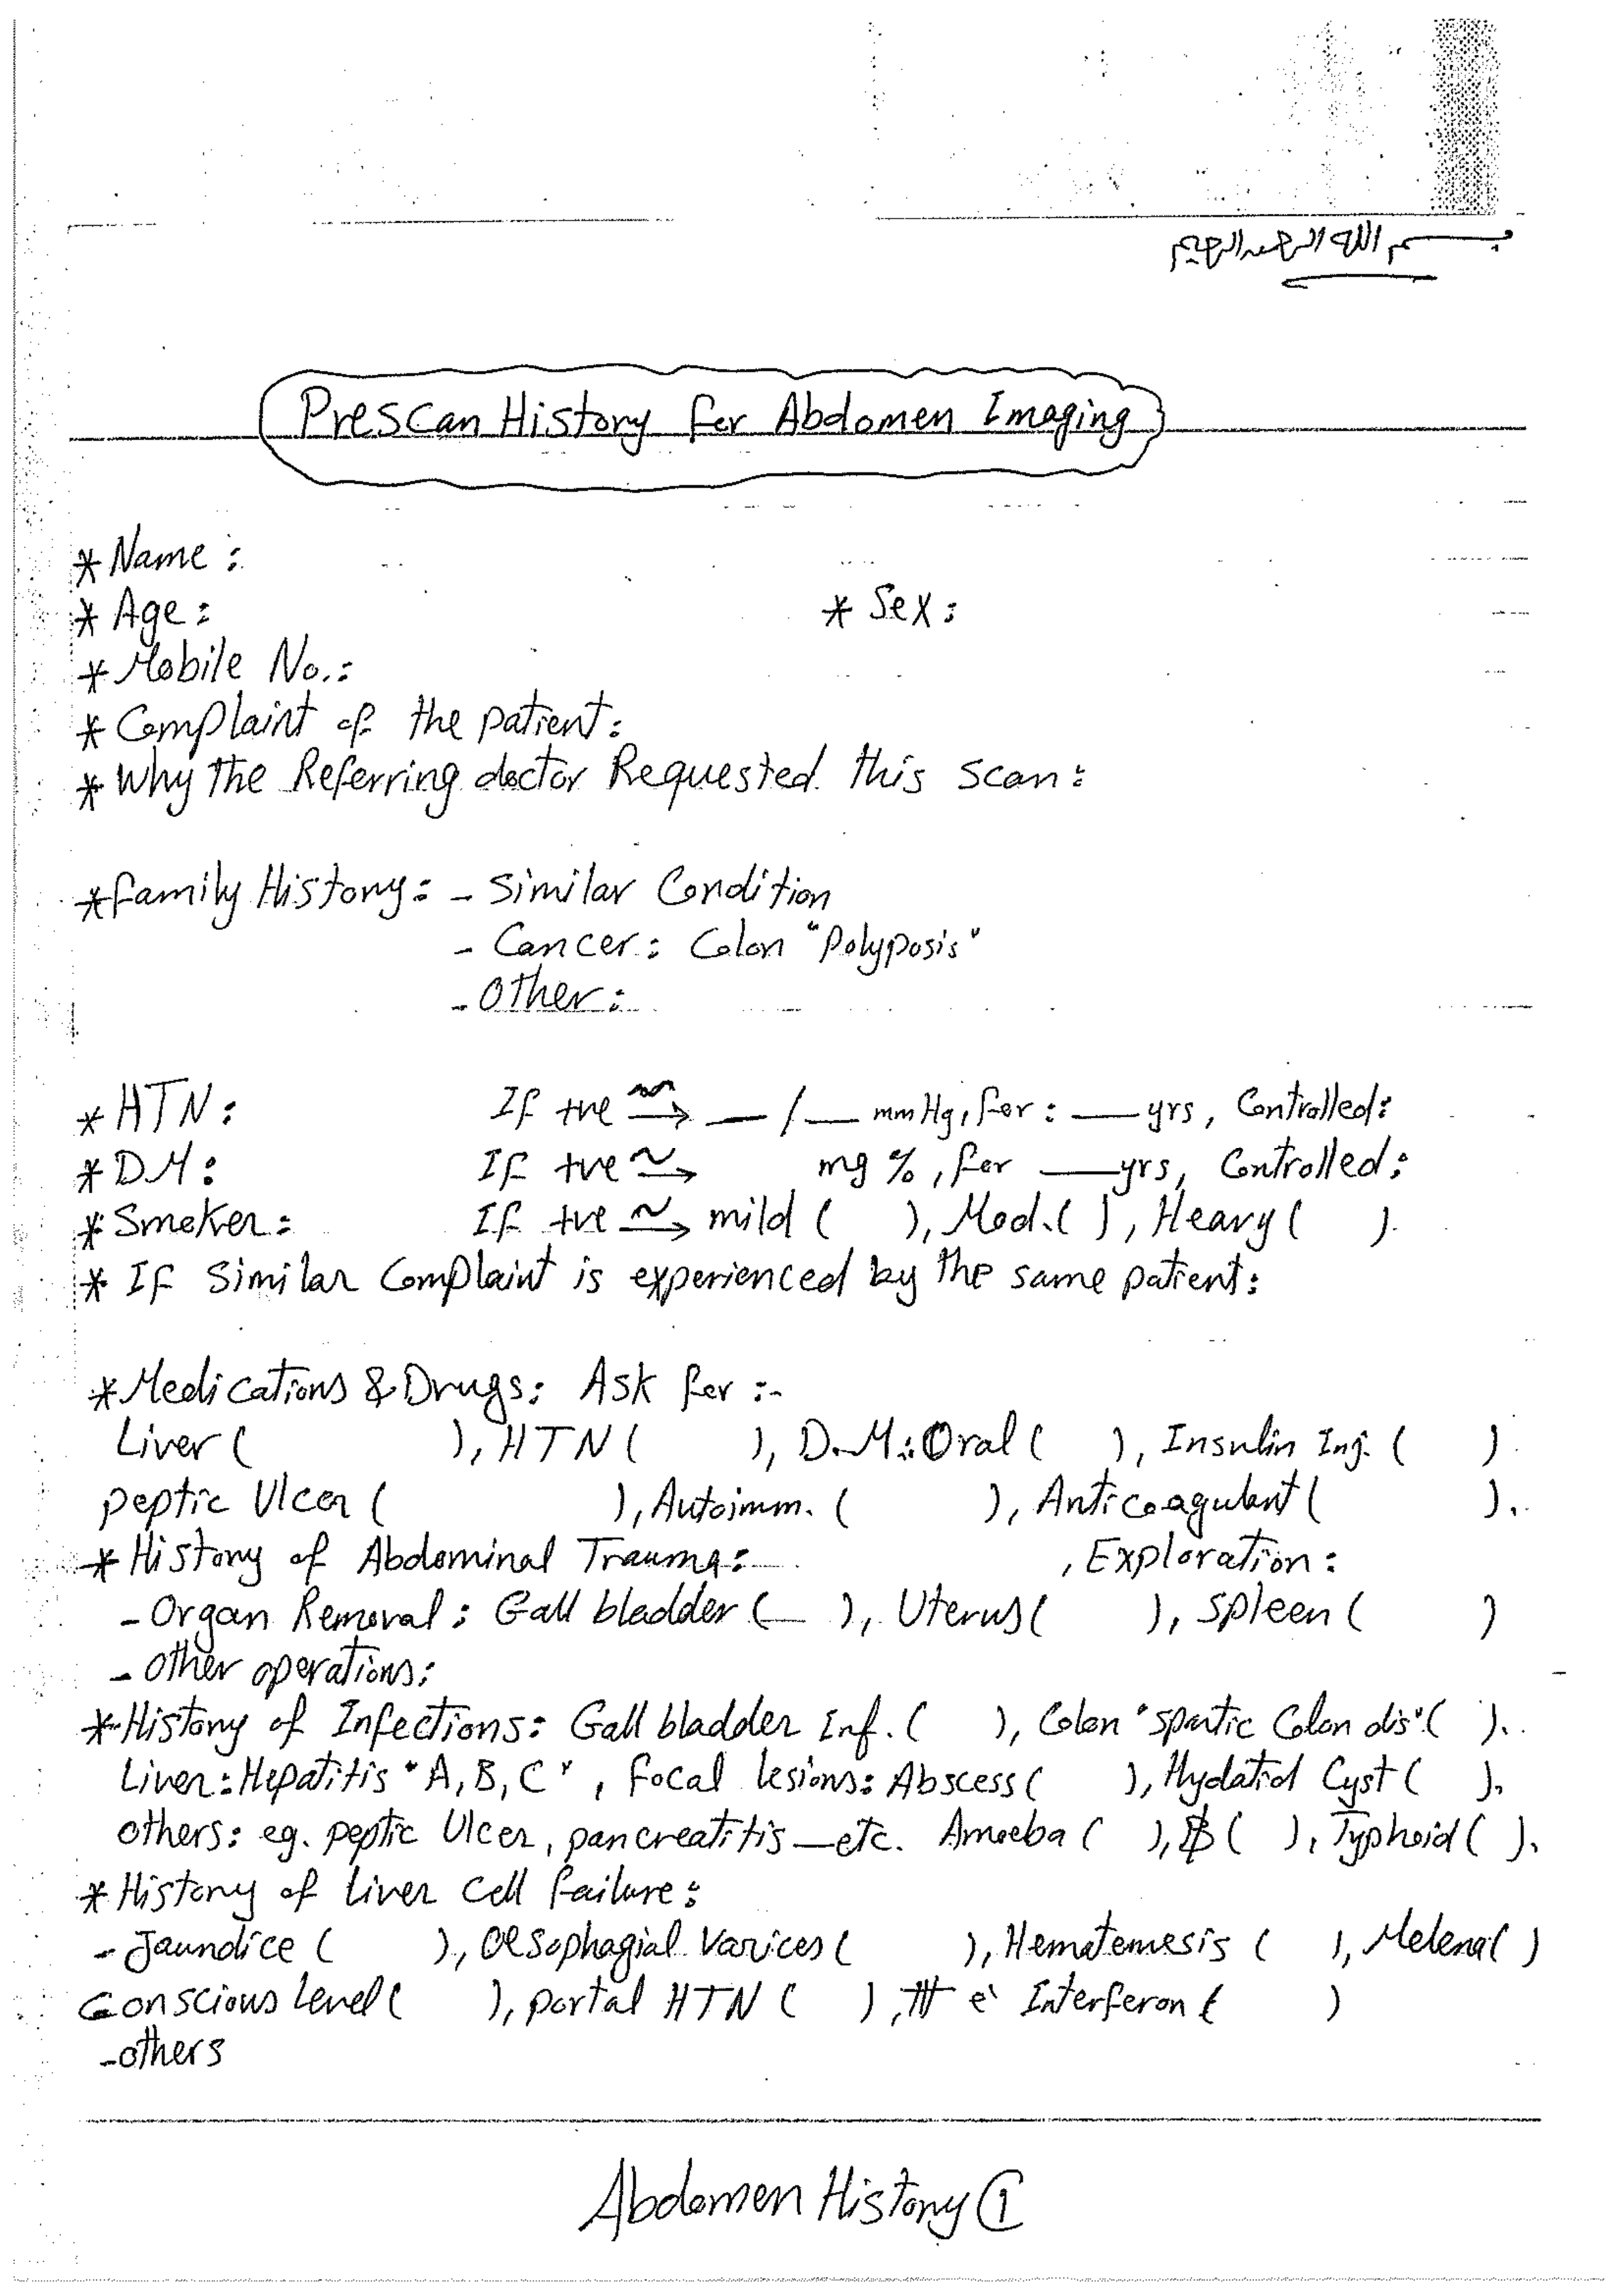 بسم الله الرحمن الرحيم
PreScan History for Abdomen Imaging
* Name :
* Age : * Sex :
* Mobile No. :
* Complaint of the patient :
* Why the Referring doctor Requested this scan :
* family History : - Similar Condition
- Cancer : Colon "Polyposis"
- Other :
* HTN : If +ve ⇒ __ / __ mmHg, for : __ yrs, Controlled :
* DM : If +ve ⇒ mg %, for __ yrs, Controlled :
* Smoker : If +ve ⇒ mild ( ), Mod. ( ), Heavy ( ).
* If Similar Complaint is experienced by the same patient :
* Medications & Drugs : Ask for :-
Liver ( ), HTN ( ), D.M : Oral ( ), Insulin Inj. ( )
peptic Ulcer ( ), Autoimm. ( ), Anticoagulant ( ).
* History of Abdominal Trauma : , Exploration :
- Organ Removal : Gall bladder ( ), Uterus ( ), Spleen ( )
- other operations :
* History of Infections : Gall bladder Inf. ( ), Colon "spastic Colon dis" ( ).
Liver : Hepatitis "A, B, C", focal lesions : Abscess ( ), Hydatid Cyst ( ).
others : eg. peptic Ulcer, pancreatitis — etc. Amoeba ( ), ( ), Typhoid ( ).
* History of liver cell failure :
- Jaundice ( ), Oesophagial Varices ( ), Hematemesis ( ), Melena ( )
Conscious level ( ), portal HTN ( ), ttt è Interferon ( )
- others
Abdomen History ①